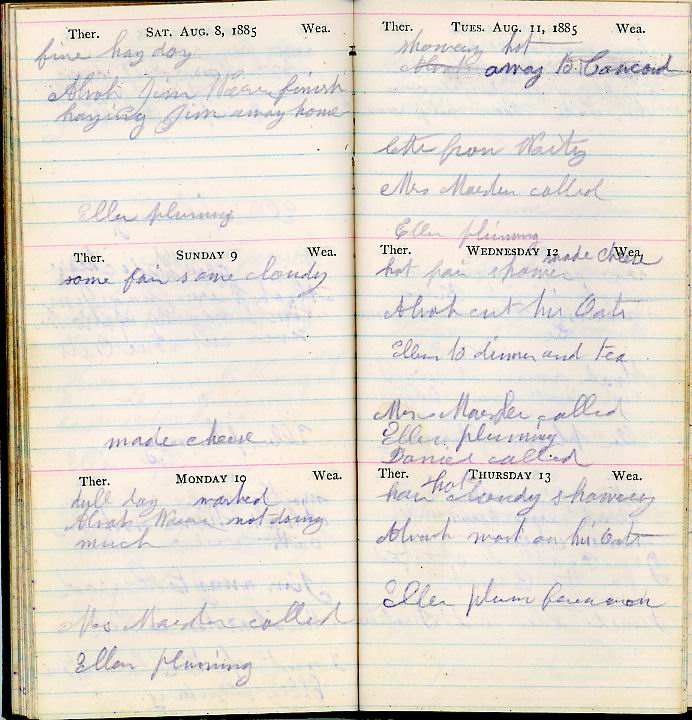 Ther. SAT. AUG. 8, 1885 Wea.
fine hay day
Alvah Jim Warren finish
haying Jim away home
Ellen pluming
Ther. SUNDAY 9 Wea.
some fair some cloudy
made cheese
Ther. MONDAY 10 Wea.
dull day washed
Alvah not doing
much
Mrs called
Ellen pluming
Ther. TUES. AUG. 11, 1885 Wea.
showery hot
Alvah away to Concord
letter from
Mrs called
Ellen pluming
Ther. WEDNESDAY 12 Wea.
made cheese
hot fair shower
Alvah cut his Oats
Ellen to dinner and tea
Mrs called
Ellen pluming
Daniel called
Ther. THURSDAY 13 Wea.
hot cloudy showery
Alvah work on his Oats
Ellen plum